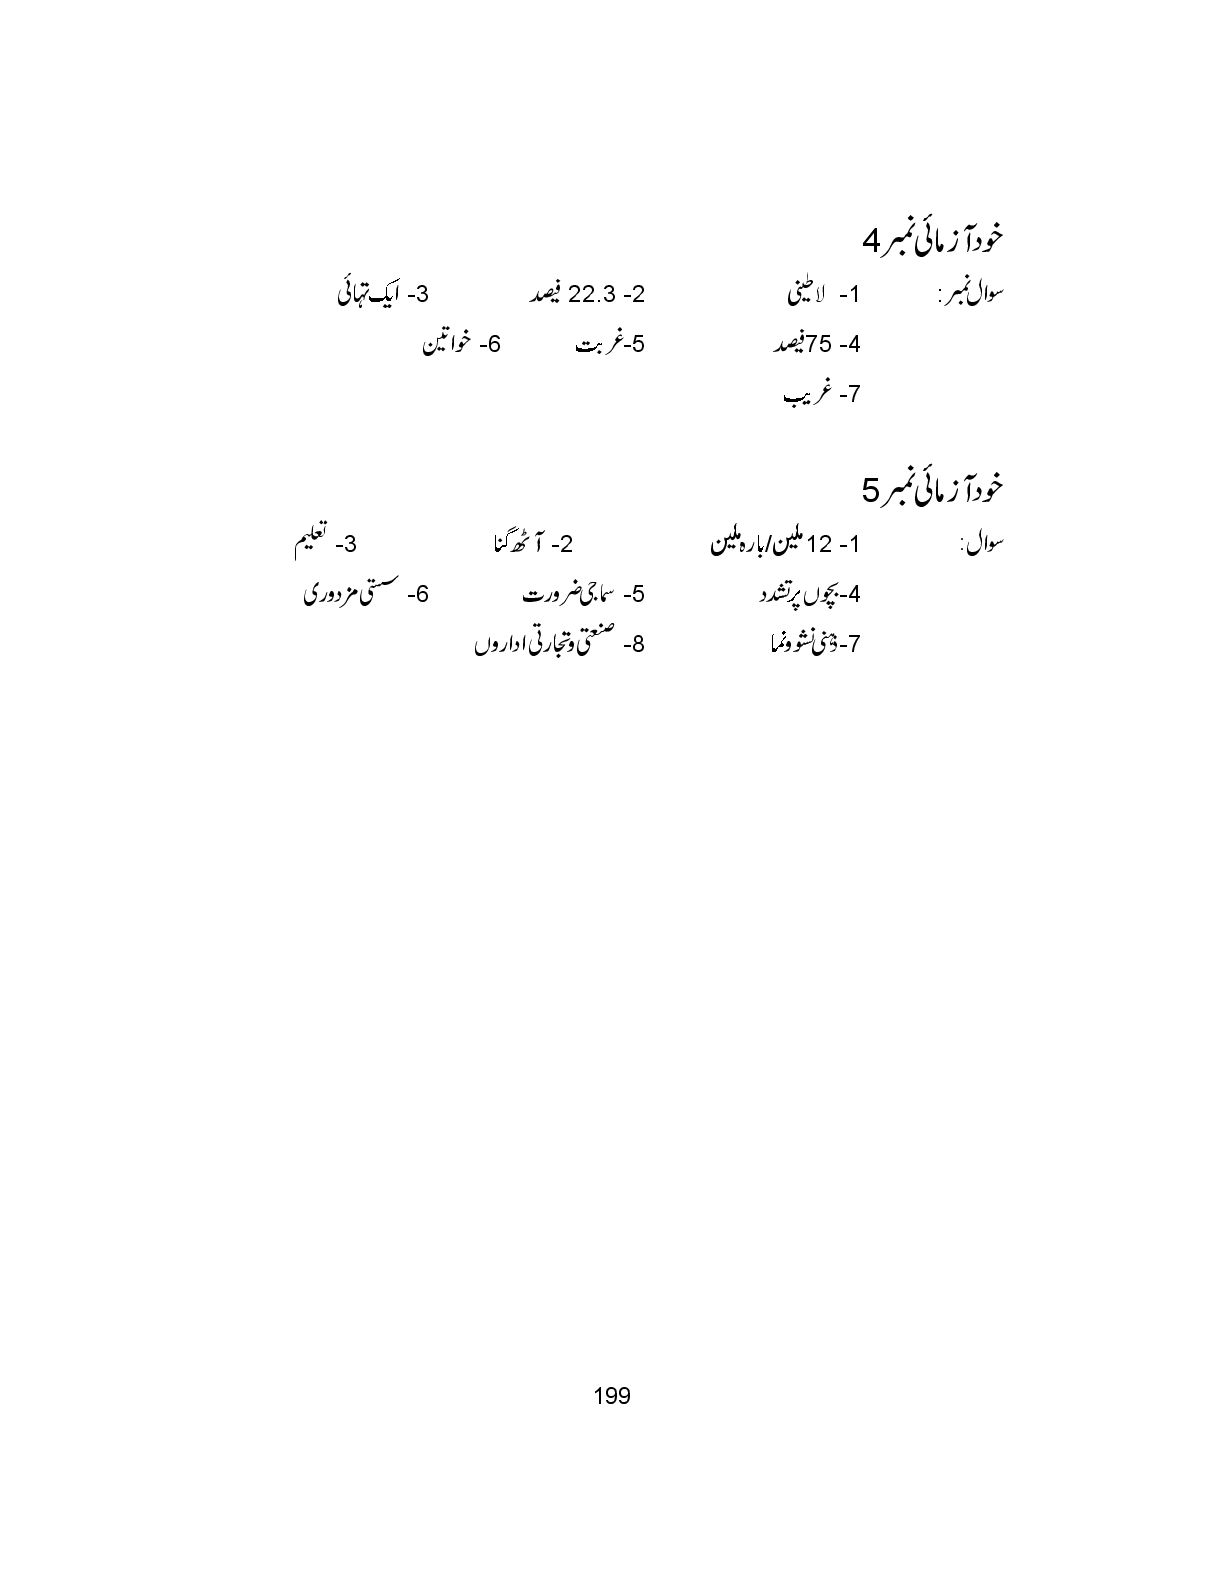 خود آزمائی نمبر 4
سوال نمبر: 1- لاطینی 2- 22.3 فیصد 3- ایک تہائی
4- 75 فیصد 5- غربت 6- خواتین
7- غریب
خود آزمائی نمبر 5
سوال: 1- 12 ملین/بارہ ملین 2- آٹھ گنا 3- تعلیم
4- بچوں پر تشدد 5- سماجی ضرورت 6- سستی مزدوری
7- ذہنی نشوونما 8- صنعتی و تجارتی اداروں
199